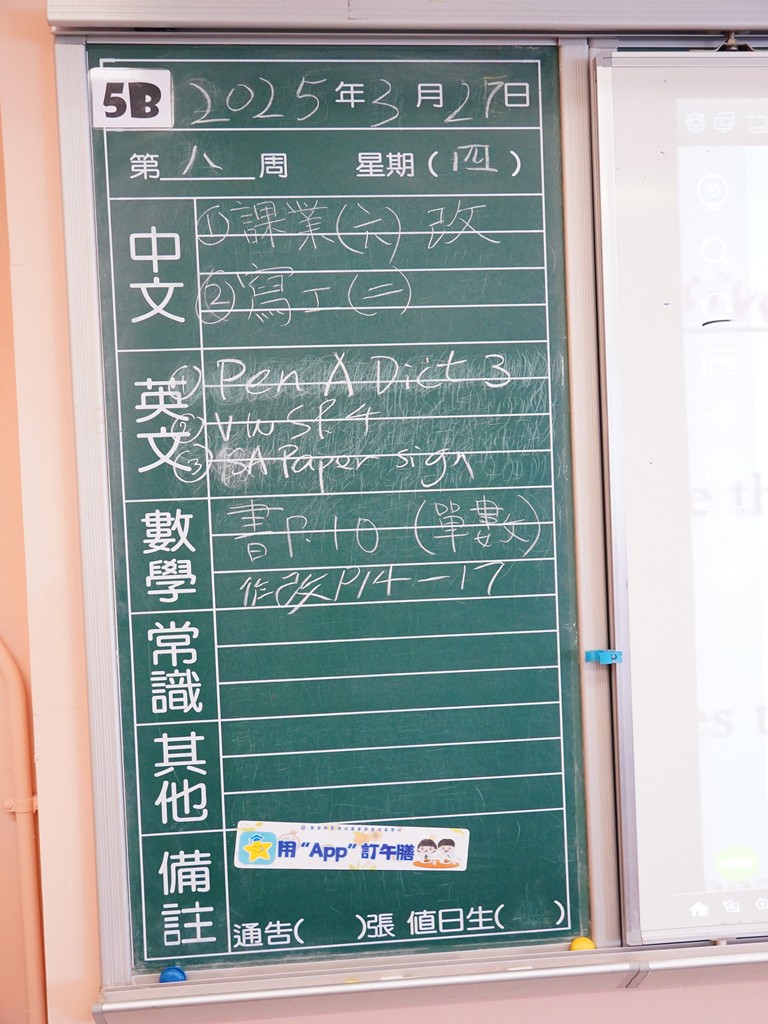 5B 2025年3月27日
第八周 星期(四)
中文
①課業(六) 改
②寫工(二)
英文
① Pen A Dict 3
② VWS P.4
③ SA Paper sign
數學
書P.10 (單數)
作改P14-17
常識
其他
備註
用“App”訂午膳
通告( )張 值日生( )